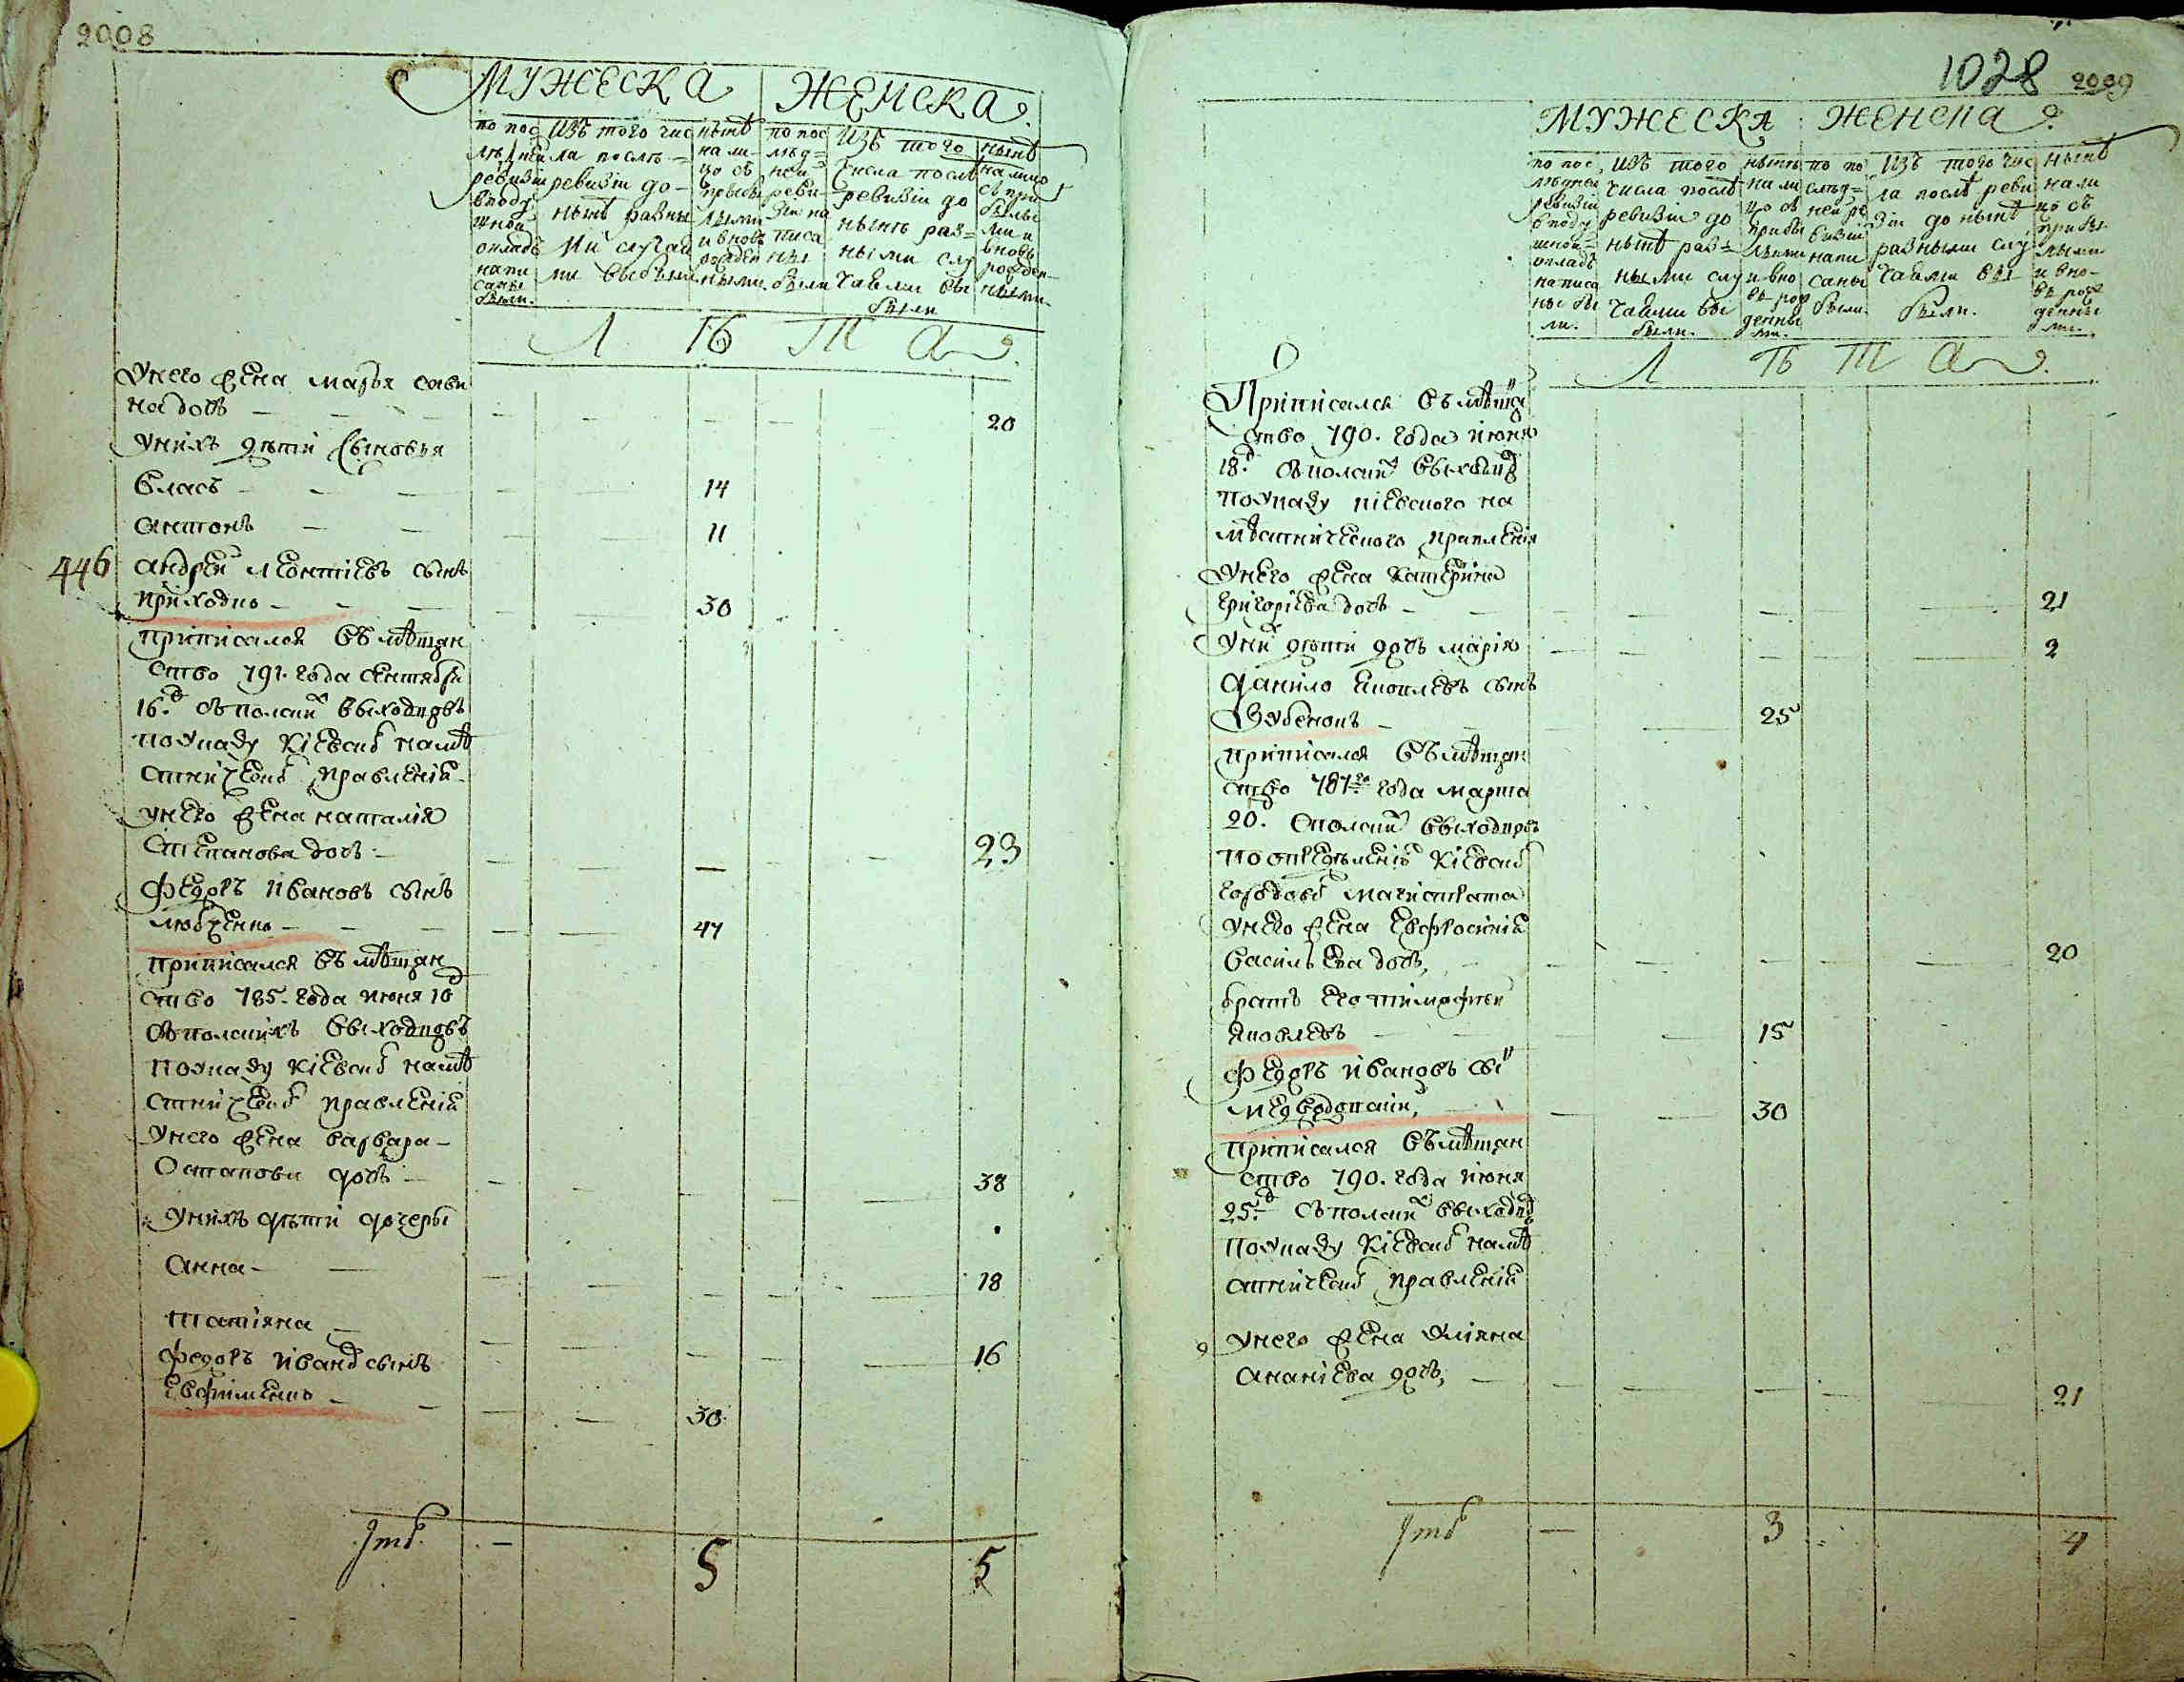 2008
МУЖЕСКА ЖЕНСКА
по пос лѣдней ревизіи вподушной окладъ написаны были.
Изъ того числа послѣ ревизіи до нынѣ разными случаями выбыли
нынѣ на лицо съ прибылыми и вновь рожденными.
по послѣдней ревизіи написаны были
Изъ того числа послѣ ревизіи до нынѣ разными случаями выбыли
нынѣ на лицо съ прибылыми и вновь рожденными.
Л Ѣ Т А
Унего жена марья сави
на дочь 20
Унихъ дѣти сыновья
Власъ 14
антонъ 11
446 андрей леонтіевъ сынъ
приходко 30
приписался въ мѣщан
ство 791. года сентября
16.д съ полских выходцовъ
поуказу Кіевског намѣ
стническог правленія
унего жена наталія
Степанова дочь 23
Федоръ Ивановъ сынъ
любченко 47
приписался въ мѣщан
ство 785. года июня 10д
съ полскихъ выходцовъ
поуказу Кіевског намѣ
стническог правленія
Унего жена варвара
Остапова дочь 38
Унихъ дѣти дочеры
анна 18
татіяна 16
федоръ иванов сынъ
Евфименко 30
Итого 5 5
1028 2009
МУЖЕСКА ЖЕНСКА
по послѣдней ревизіи вподушной окладъ написаны были.
Изъ того числа послѣ ревизіи до нынѣ разными случаями выбыли.
нынѣ на лицо съ прибылыми и вновь рожденными.
по последней ревизіи написаны были.
Изъ того числа послѣ ревизіи до нынѣ разными случаями выбыли.
нынѣ на лицо съ прибылыми и вновь рожденными.
Л Ѣ Т А
Приписался въ мѣщан
ство 790. года июня
18.д съ полских выходцов
поуказу кіевского на
мѣстнического правленія
Унего жена катерина
григоріева дочь 21
Уних дѣти дочь марія 2
Данило яковлевъ сынъ
Зубенокъ 25
приписался въ мѣщан
ство 787го года марта
20. с полских выходцовъ
по опредѣленію Кіевског
городовог магистрата
унего жена Евфросинія
васильева дочь, 20
братъ его тимофей
яковлевъ 15
Федоръ Ивановъ сын
медведовскій, 30
Приписался въ мѣщан
ство 790. года июня
25.д съ полских выходцов
поуказу Кіевског намѣ
стническог правленія
унего жена Уліяна
ананіева дочь, 21
Итого 3 4